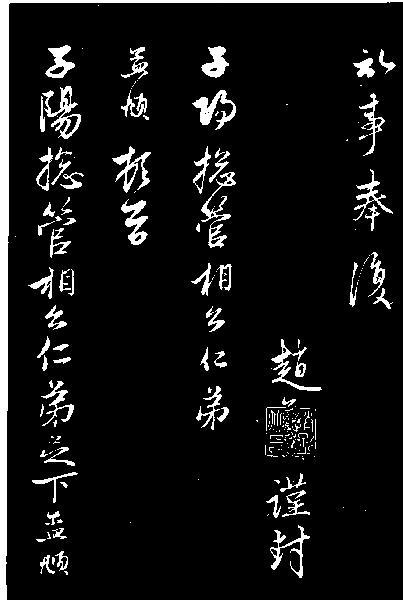 記事奉復
趙 謹封
子陽揔管相公仁弟
孟頫頓首
子陽揔管相公仁弟足下孟頫